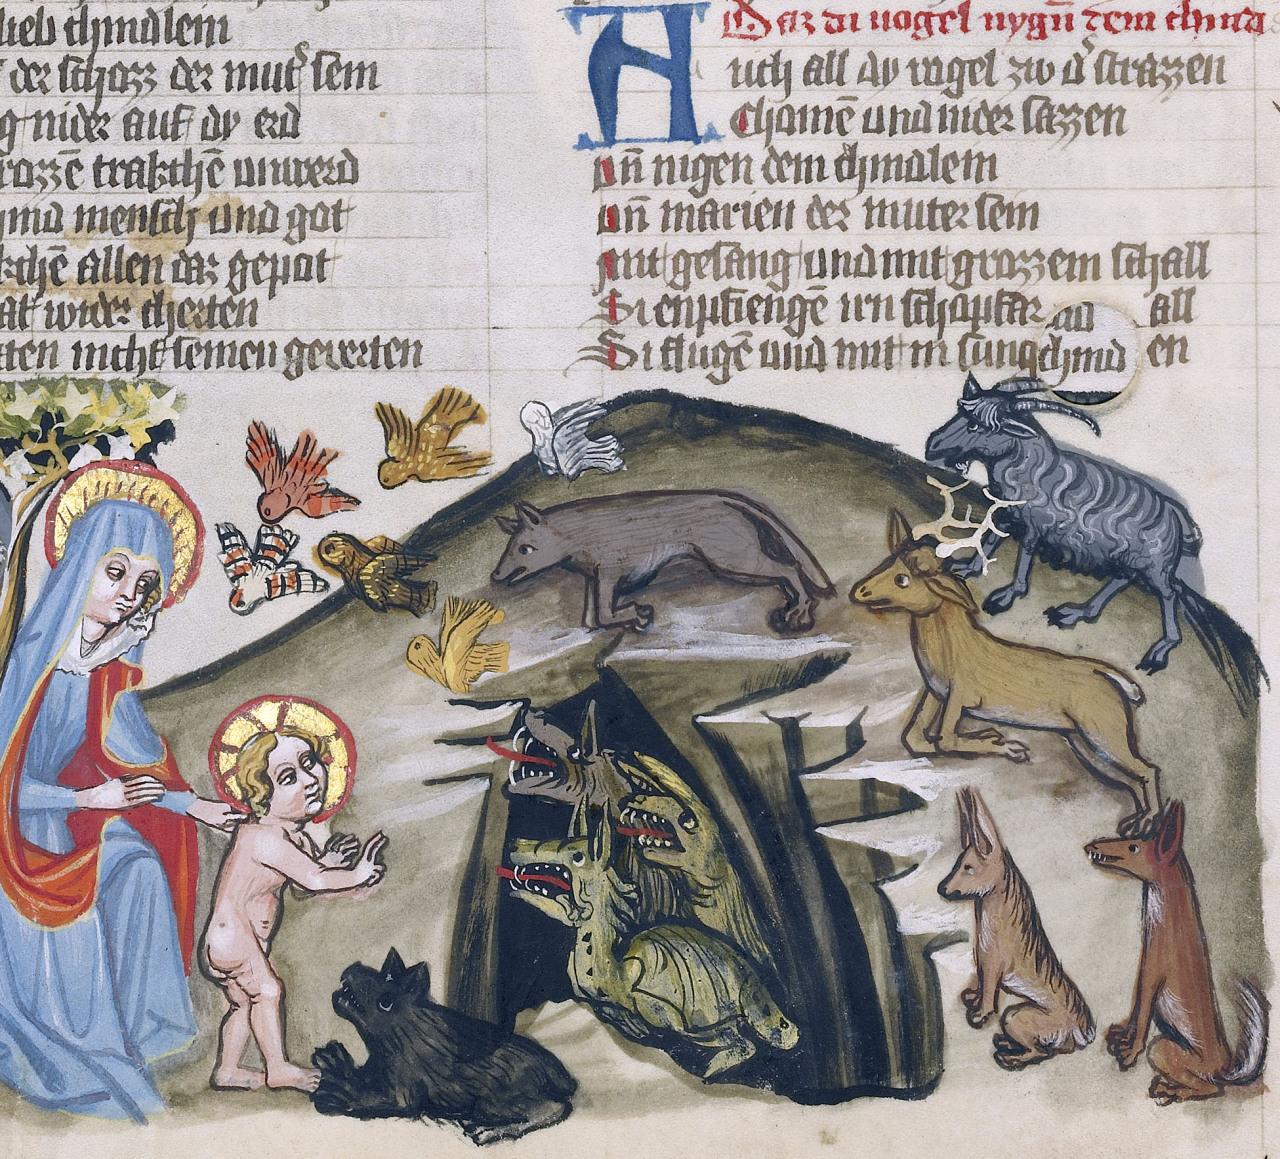 lieb chindlein
der schozz der mut᷑ sein
g nider auf dy erd
rozzē trakchē unwerd
ind mensch und got
kchē allen daz gepot
at wider cherten
ten nicht seinen geverten
Daz di vogel nygñ dem chind
Auch all dy vogel zw d᷑ strazzen
Chamē und nider sazzen
Vñ nigen dem chindlein
Vñ marien der muter sein
Mit gesang und mit grozzem schall
Si enpfiengē irn schopfær all
Si flugē und mit in sung en
chind